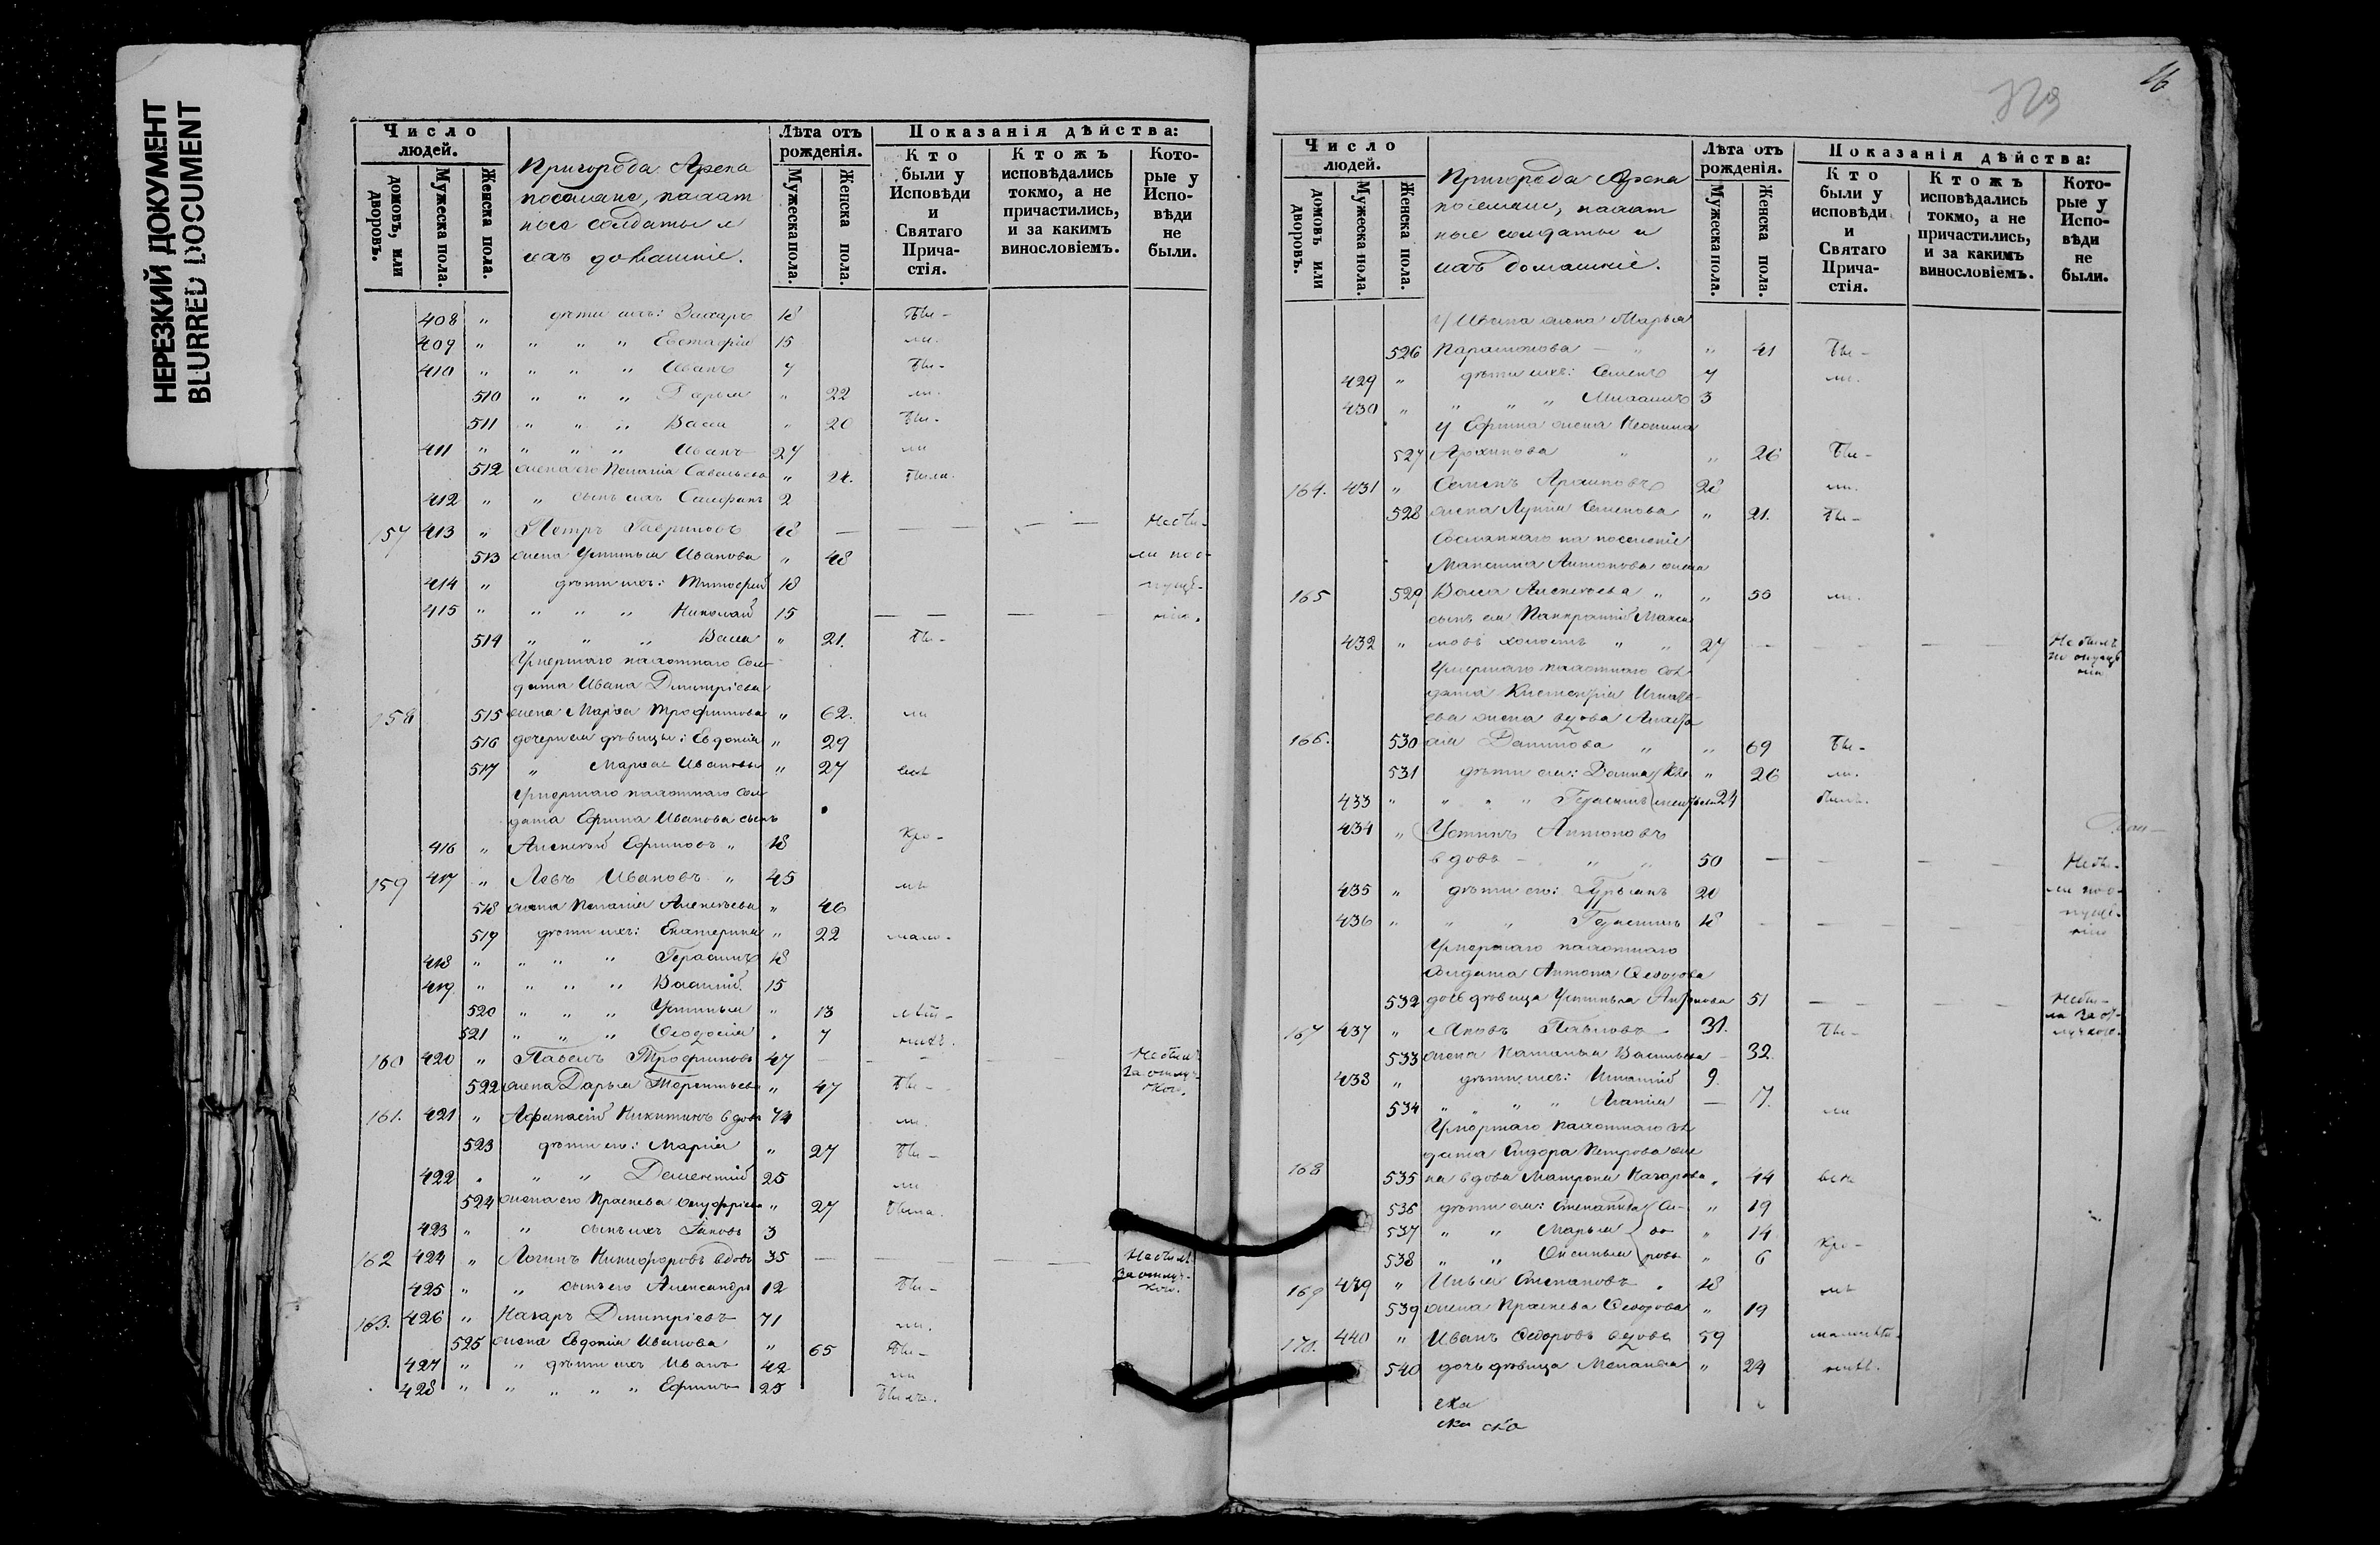 НЕРЕЗКИЙ ДОКУМЕНТ
BLURRED DOCUMENT
Число людей.
домовъ, или дворовъ.
Мужеска пола.
Женска пола.
Пригорода Арска
пахат
ные солдаты и
ихъ домашніе.
Лѣта отъ рожденія.
Мужеска пола.
Женска пола.
Показанія дѣйства:
Кто были у Исповѣди и Святаго Прича-стія.
Ктожъ исповѣдались токмо, а не причастились, и за какимъ винословіемъ.
Кото-рые у Испо-вѣди не были.
408 " дѣти ихъ: Захаръ 18 Бы-
409 " " " " Евстафій 15 ли.
410 " " " " Иванъ 7 Бы-
510 " " " Дарья " 22 ли.
511 " " " Васса " 20 Бы-
411 " " " " Иванъ 27 ли
512 жена его Пелагія Савельева " 24. Были.
412 " " сынъ ихъ 2
157 413 " Петръ Гавриловъ 48 — Небы-
513 жена Устинья Иванова " 48 ли по о-
414 " дѣти ихъ: Тимофей 18 пуще-
415 " " " " Николай 15 нію.
514 " " " Васса " 21. Бы-
Умершаго пахотнаго сол-
дата Ивана Дмитріева
158 515 жена Марѳа Трофимова " 62. ли
516 дочери ея дѣвицы: Евдокія " 29
517 " Марѳа Ивановы " 27
Умершаго пахотнаго сол
дата Ефима Иванова сынъ
416 " Алексѣй Ефимовъ " 18 Кро-
159 417 " Левъ Ивановъ " 45 мѣ
518 жена Пелагія Алексѣева " 46
519 дѣти ихъ: Екатерина " 22 мало-
418 " " " " Герасимъ 18
419 " " " " Василій 15
520 " " " Устинья " 13 лѣт-
521 " " " Ѳеодосія " 7 нихъ.
160 420 " Павелъ Трофимовъ 47 — Небылъ
522 жена Дарья Терентьева " 47 Бы- за отлуч-кою.
161. 421 " Афанасій Никитинъ вдовъ 74 ли.
523 дѣти его: Марія " 27 Бы-
422 " " " Дементій 25 ли
524 жена его Прасковья Онуфріева " 27 Была.
423 " " сынъ ихъ Яковъ 3
162 424 " Логинъ Никифоровъ вдовъ 35 — Небылъ за отлуч-кою.
425 " " сынъ его Александръ 12 Бы-
163. 426 " Назаръ Дмитріевъ 71 ли.
525 жена Евдокія Иванова " 65 Бы-
427 " " дѣти ихъ Иванъ 42 ли
428 " " " " " Ефимъ 25 Былъ.
16
Число людей.
домовъ или дворовъ.
Мужеска пола.
Женска пола.
Пригорода Арска
пахат
ные солдаты и
ихъ домашніе.
Лѣта отъ рожденія.
Мужеска пола.
Женска пола.
Показанія дѣйства:
Кто были у исповѣди и Святаго Прича-стія.
Ктожъ исповѣдались токмо, а не причастились, и за какимъ винословіемъ.
Кото-рые у Испо-вѣди не были.
У Ивана жена Марья
526 Парамонова — " " 41 Бы-
429 " дѣти ихъ: Семенъ 7 ли.
430 " " " " Михаилъ 3
У Ефима жена
527 Архипова " " 26 Бы-
164. 431 " Семенъ Архиповъ 28 ли.
528 жена Семенова " 21. Бы-
Сосланнаго на поселеніе
Максима Антонова жена
165 529 Васса Алексѣева " " 55 ли.
сынъ ея Панкратій Макси
432 " мовъ холостъ " " 27 — Небылъ по опуще нію
Умершаго пахотнаго сол
дата Игнать-
ева жена вдова Анаста
166. 530 сія Данилова " " 69 Бы-
531 дѣти ея: " 26 ли.
433 " " " " Герасимъ 24 Былъ.
434 " Устинъ Антоновъ
вдовъ — " " 50 — Небы-
435 " дѣти его: Гурьянъ 20 ли по о-
436 " " " Герасимъ 18 — пуще-нію
Умершаго пахотнаго
солдата Антона Ѳедорова
532 дочь дѣвица Устинья Антонова 51 — Небы-ла за от-лучкою.
167 437 " Яковъ Павловъ 31. Бы-
533 жена Наталья Васильева — 32.
438 " дѣти ихъ: Игнатій 9.
534 " " " " Агапія — 7. ли
Умершаго пахотнаго сол
дата Сидора Петрова же
168 535 на вдова Матрона Назарова " 44 всѣ
536 дѣти ея: Степанида Си- " 19
537 " " Марья до " 14 Кро-
538 " " Аксинья ровы " 6
169 439 " Илья Степановъ " 18 мѣ
539 жена Прасковья Ѳедорова " 19
170. 440 " Иванъ Ѳедоровъ вдовъ 59 малолѣт-
540 дочь дѣвица Меланья " 24 нихъ.